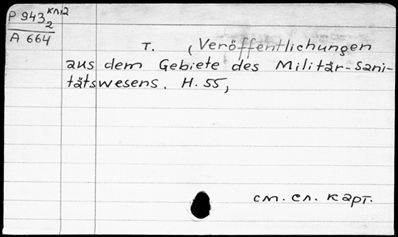 Р 943 кл12
2
А 664
Т. (Veröffentlichungen
aus dem Gebiete des Militär-Sani-
tätswesens. H. 55,
см. сл. карт.